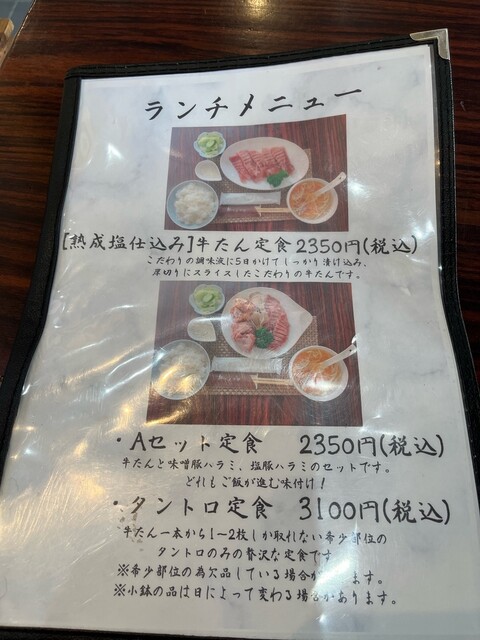 ランチメニュー
[熟成塩仕込み]牛たん定食2350円(税込)
こだわりの調味液に5日かけてしっかり漬け込み、
厚切りにスライスしたこだわりの牛たんです。
・Aセット定食 2350円(税込)
牛たんと味噌豚ハラミ、塩豚ハラミのセットです。
どれもご飯が進む味付け！
・タントロ定食 3100円(税込)
牛たん一本から1～2枚しか取れない希少部位の
タントロのみの贅沢な定食です
※希少部位の為欠品している場合が ます。
※小鉢の品は日によって変わる場合があります。